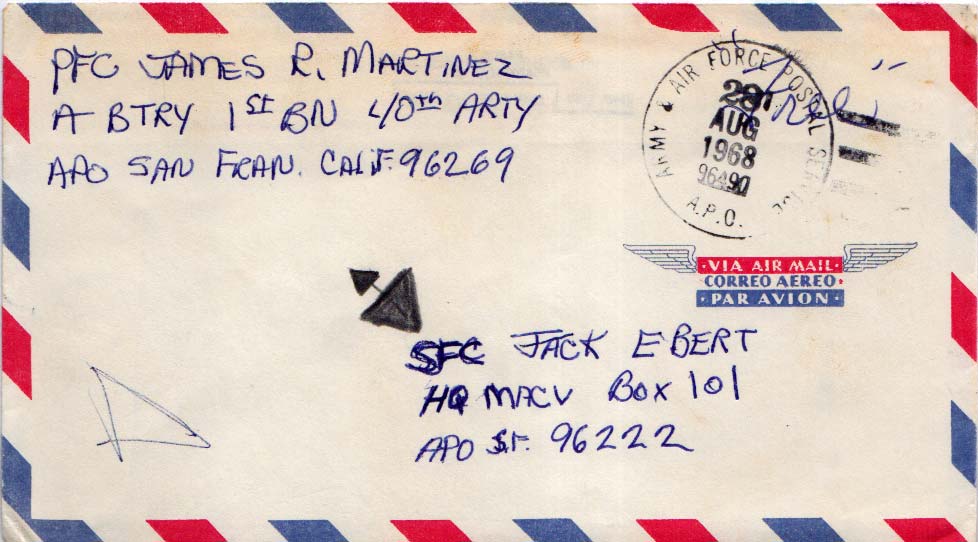 PFC JAMES R. MARTINEZ
A BTRY 1st BN 40th ARTY
APO SAN FRAN. CALIF. 96269
Free
ARMY & AIR FORCE POSTAL SERVICE
28
AUG
1968
96490
A.P.O.
·VIA AIR MAIL·
CORREO AEREO·
·PAR AVION·
SFC JACK EBERT
HQ MACV BOX 101
APO S.F. 96222